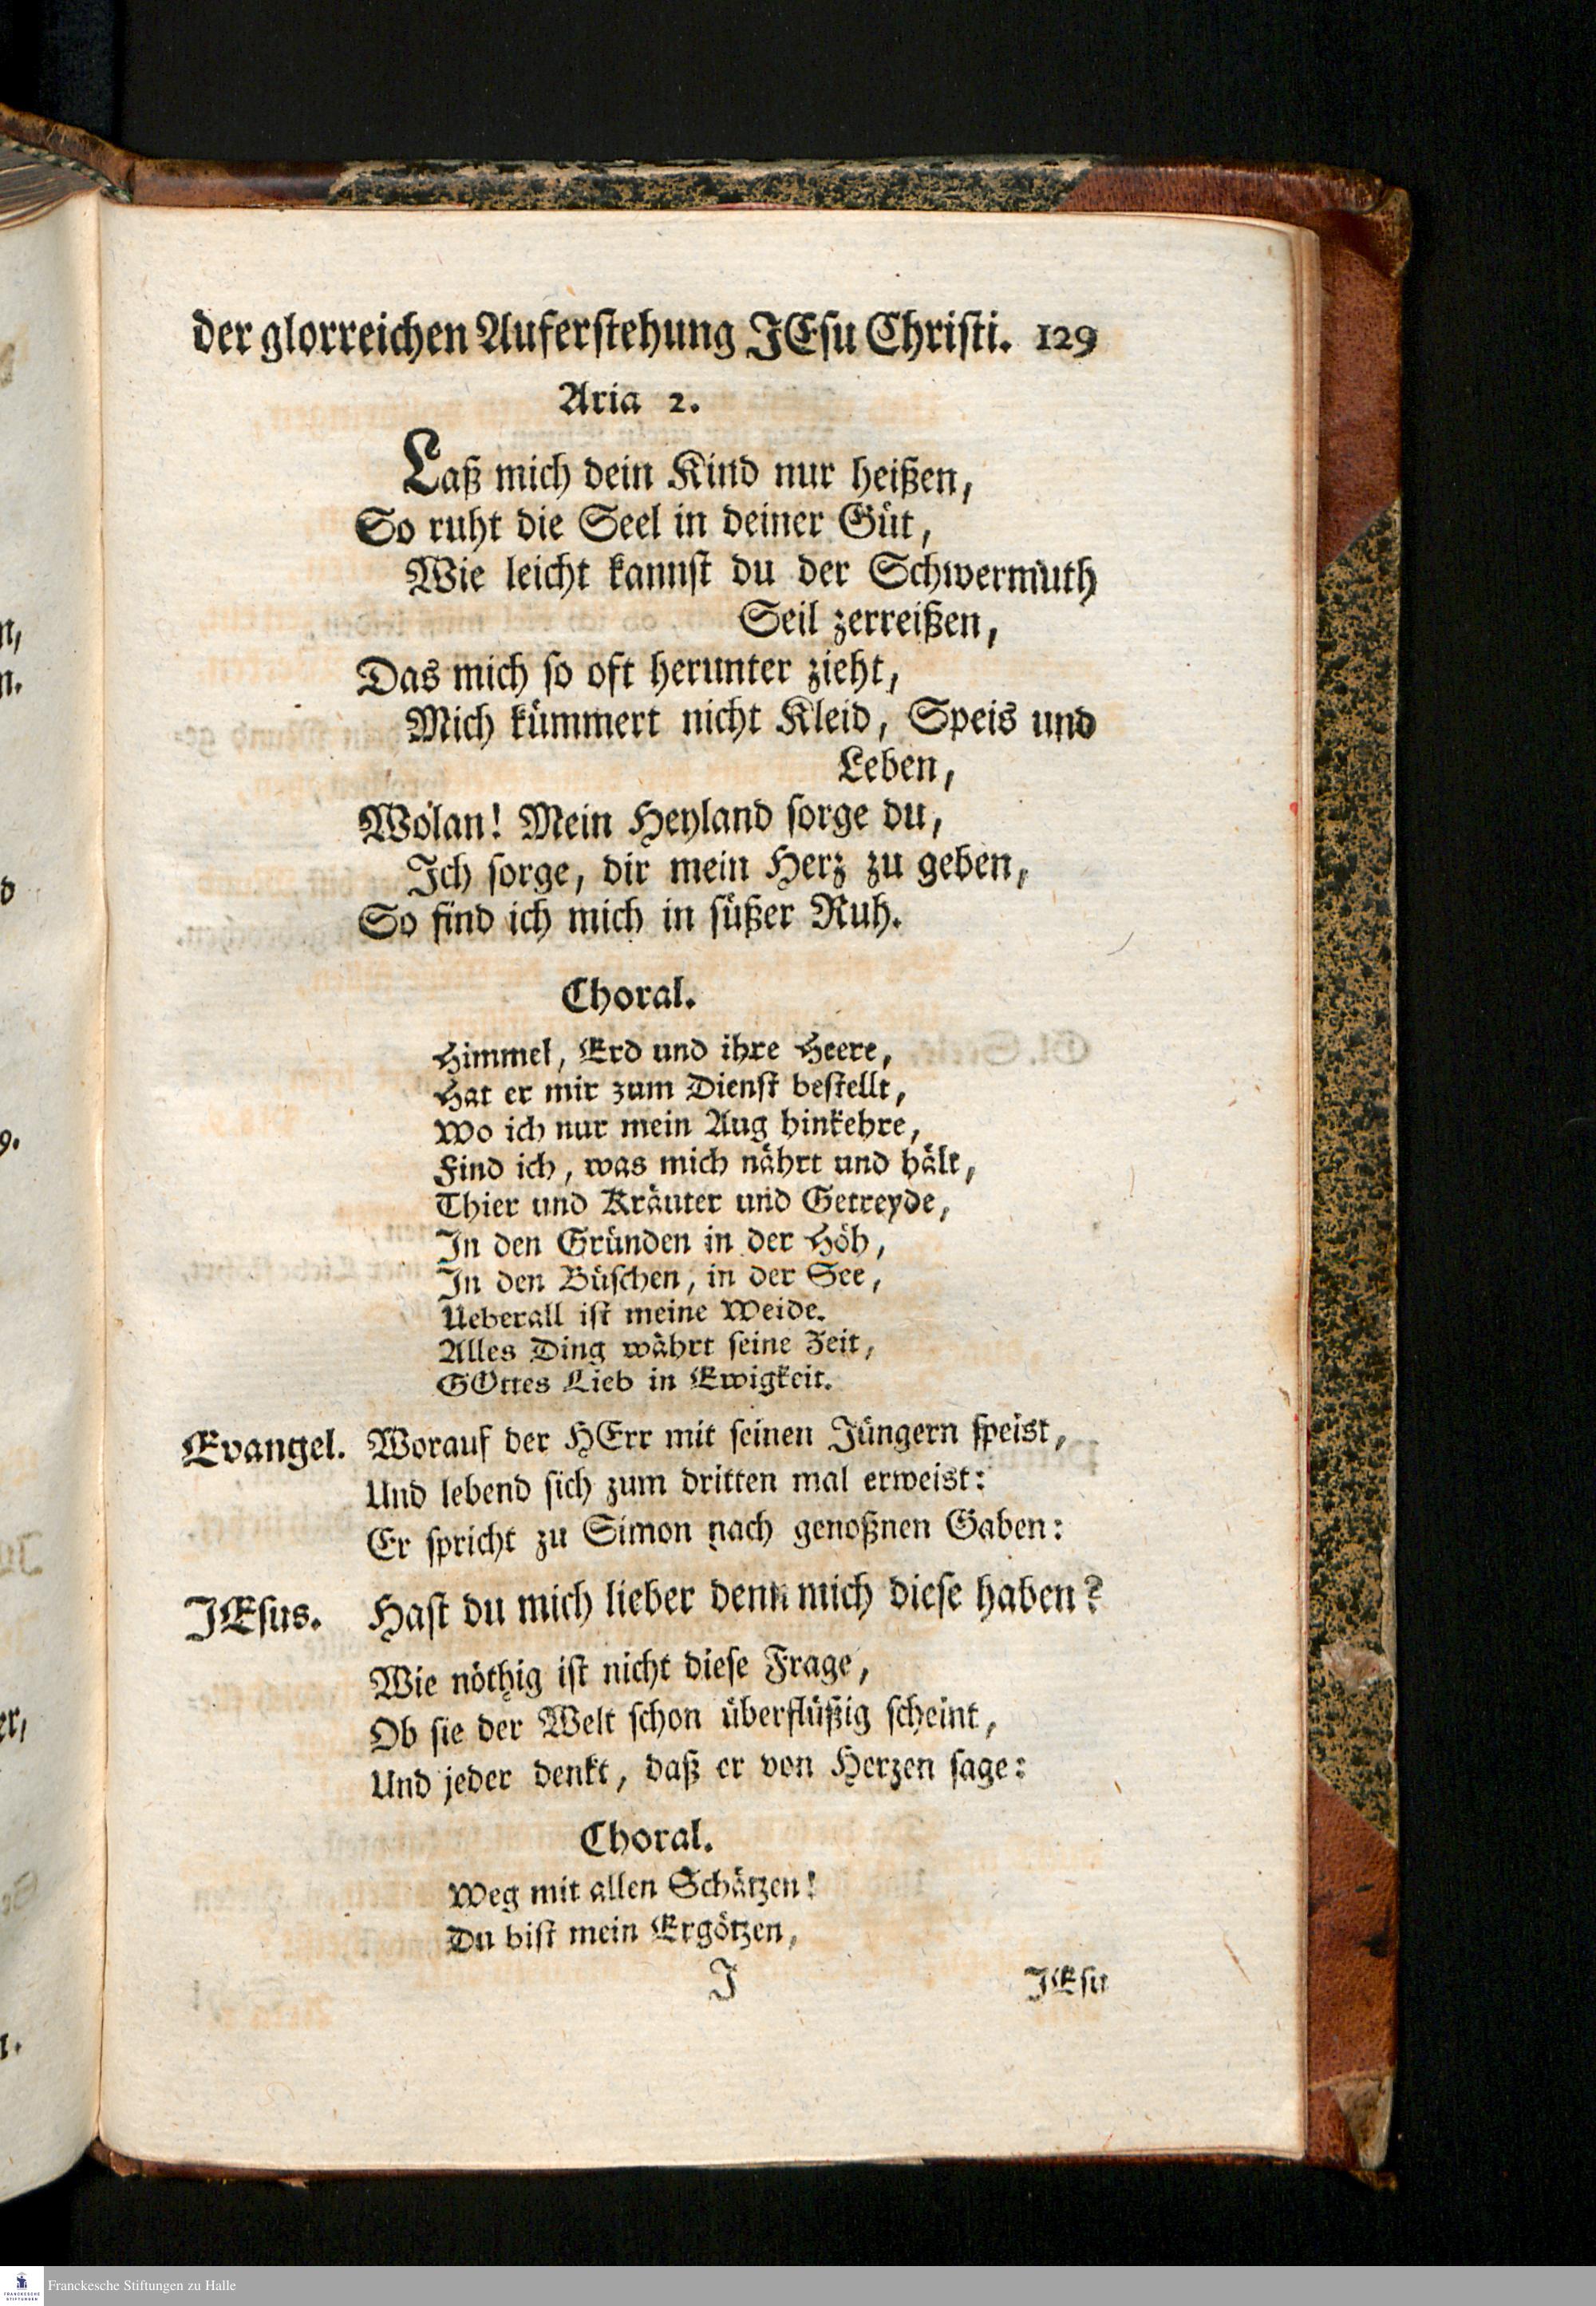 der glorreichen Auferstehung JEsu Christi. 129
Aria 2.
Laß mich dein Kind nur heißen,
So ruht die Seel in deiner Güt,
Wie leicht kannst du der Schwermuth
Seil zerreißen,
Das mich so oft herunter zieht,
Mich kümmert nicht Kleid, Speis und
Leben,
Wolan! Mein Heyland sorge du,
Ich sorge, dir mein Herz zu geben,
So find ich mich in süßer Ruh.
Choral.
Himmel, Erd und ihre Heere,
Hat er mir zum Dienst bestellt,
Wo ich nur mein Aug hinkehre,
Find ich, was mich nährt und hält,
Thier und Kräuter und Getreyde,
In den Gründen in der Höh,
In den Büschen, in der See,
Ueberall ist meine Weide.
Alles Ding währt seine Zeit,
GOttes Lieb in Ewigkeit.
Evangel. Worauf der HErr mit seinen Jüngern speist,
Und lebend sich zum dritten mal erweist:
Er spricht zu Simon nach genoßnen Gaben:
JEsus. Hast du mich lieber denn mich diese haben?
Wie nöthig ist nicht diese Frage,
Ob sie der Welt schon überflüßig scheint,
Und jeder denkt, daß er von Herzen sage:
Choral.
Weg mit allen Schätzen!
Du bist mein Ergötzen,
J JEsu
Franckesche Stiftungen zu Halle